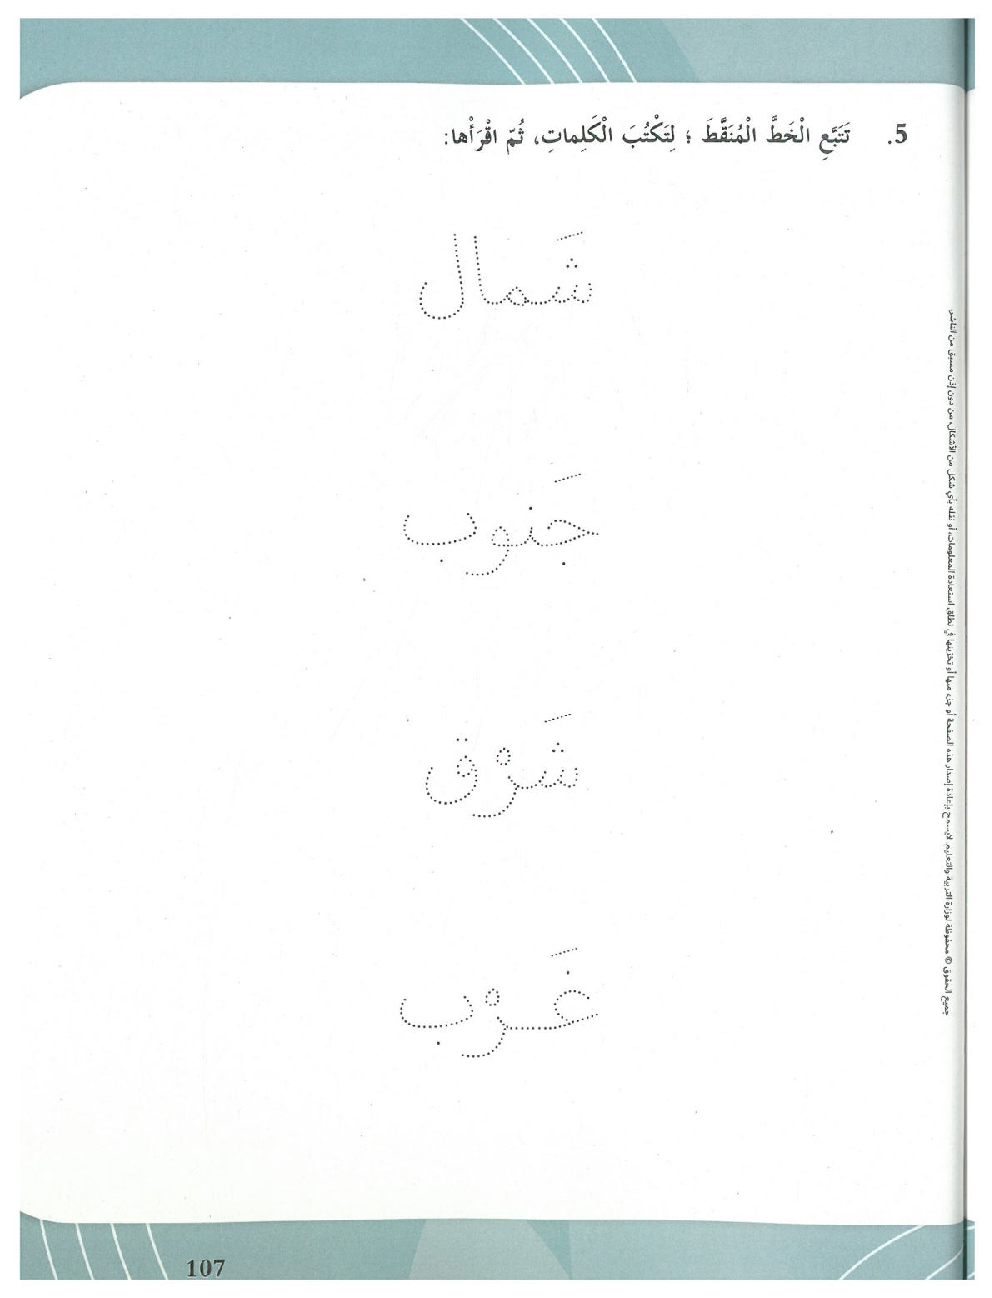 5. تَتَبَّعِ الْخَطَّ الْمُنَقَّطَ ؛ لِتَكْتُبَ الْكَلِماتِ، ثُمّ اقْرَأْها:
شَمال
جَنوب
شَرْق
غَرْب
جميع الحقوق © محفوظة لوزارة التربية والتعليم. لايسمح بإعادة إصدار هذه الصفحة أو جزء منها أو تخزينها في نطاق استعادة المعلومات، أو نقله بأي شكل من الأشكال، من دون إذن مسبق من الناشر.
107